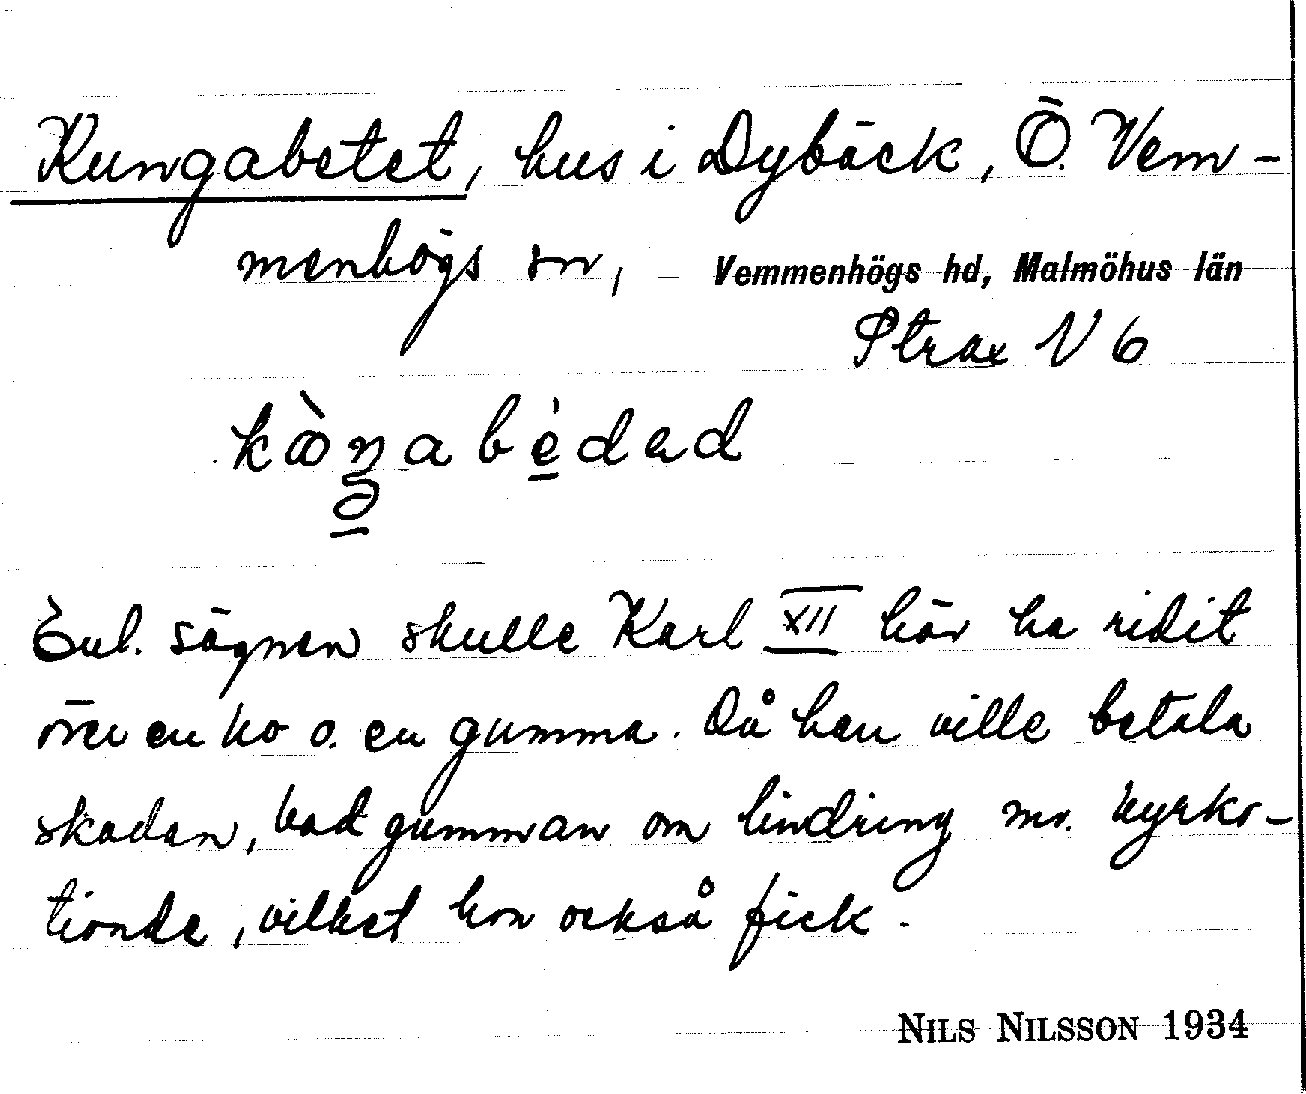 Kungabetet, hus i Dybäck, Ö. Vem-
menhögs sn, Vemmenhögs hd, Malmöhus län
Strax V 6
Enl. sägnen skulle Karl XII här ha ridit
över en ko o. en gumma. Då han ville betala
skadan, bad gumman om lindring m. kyrko-
tionde, vilket hon också fick.
NILS NILSSON 1934